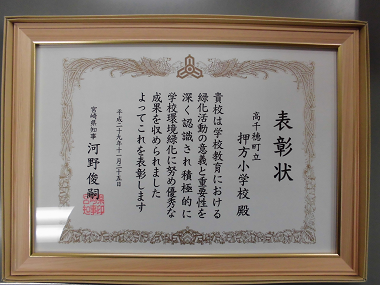 表彰状
高千穂町立
押方小学校 殿
貴校は学校教育における
緑化活動の意義と重要性を
深く認識され積極的に
学校環境緑化に努め優秀な
成果を収められました
よってこれを表彰します
平成二十九年十一月二十五日
宮崎県知事 河野俊嗣